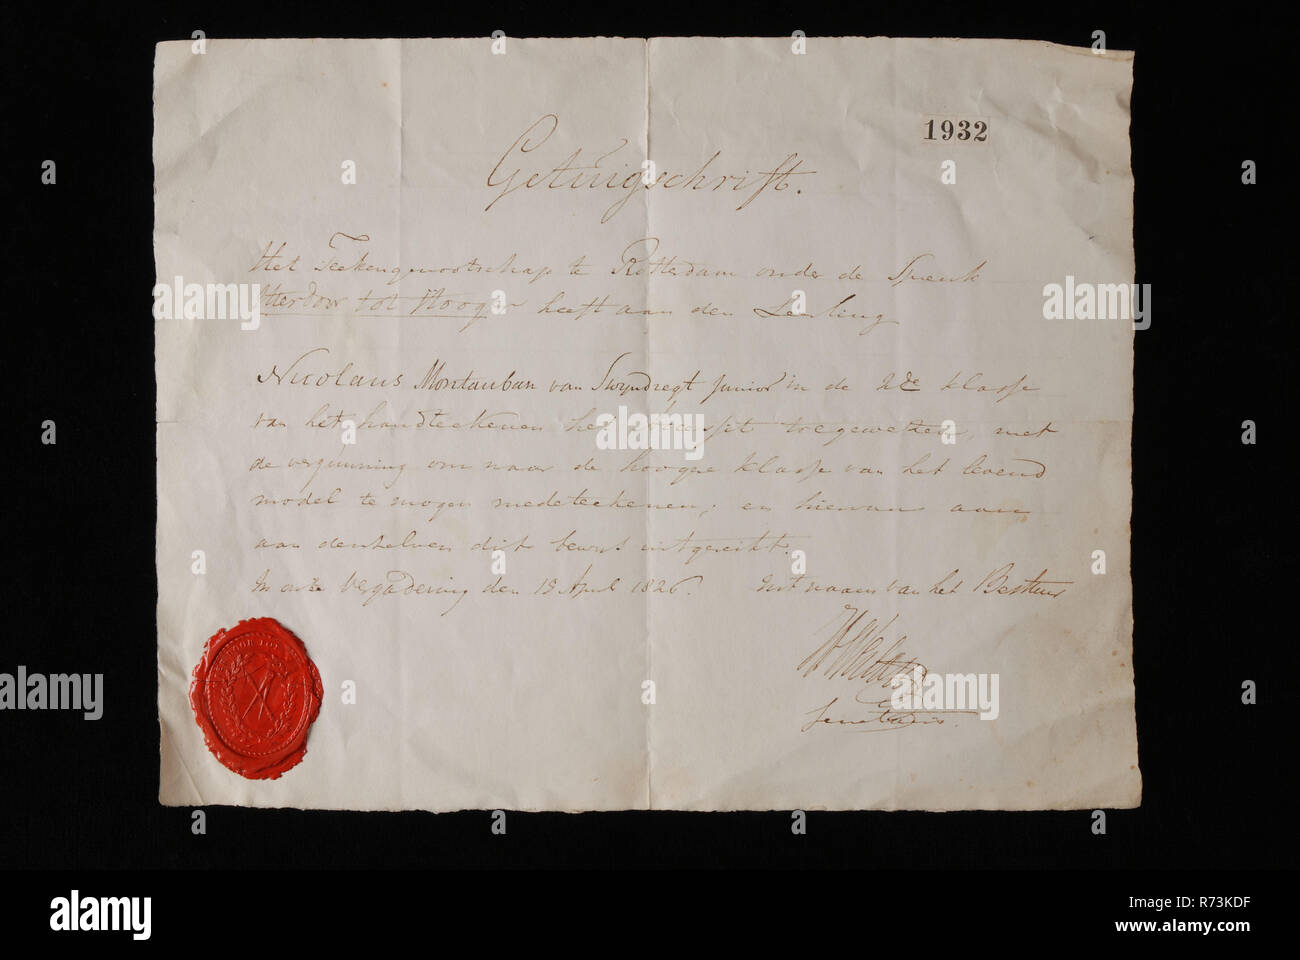 1932
Getuigschrift.
Het Teekengenootschap te Rotterdam onder de Spreuk
Hierdoor tot Hooger heeft aan den Leerling
Nicolaus Montauban van Swyndregt Junior in de 2de klasse
van het handteekenen het accessit toegewezen, met
de vergunning om naar de hoogere klasse van het levend
model te mogen medeteekenen; en hiervan aan
aan denzelven dit bewys uitgereikt.
In onze Vergadering den 18 April 1826. Uit naam van het Bestuur
Secretaris.
alamy
Image ID: R73KDF
www.alamy.com